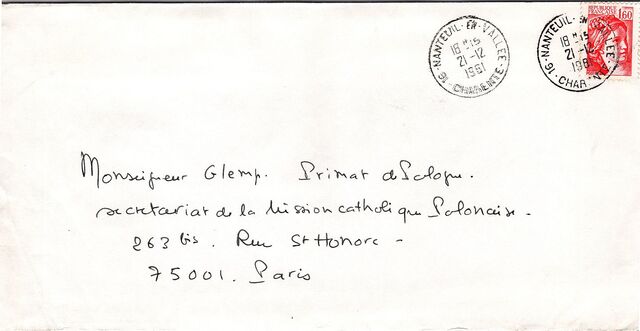 NANTEUIL-EN-VALLEE
18H15
21-12
1981
16-CHARENTE
NANTEUIL-EN-VALLEE
18H15
21-12
1981
16-CHAR
REPUBLIQUE
FRANCAISE
1,60
Monseigneur Glemp. Primat de Pologne.
secretariat de la Mission catholique Polonaise.
263 bis. Rue St Honore -
75001. Paris